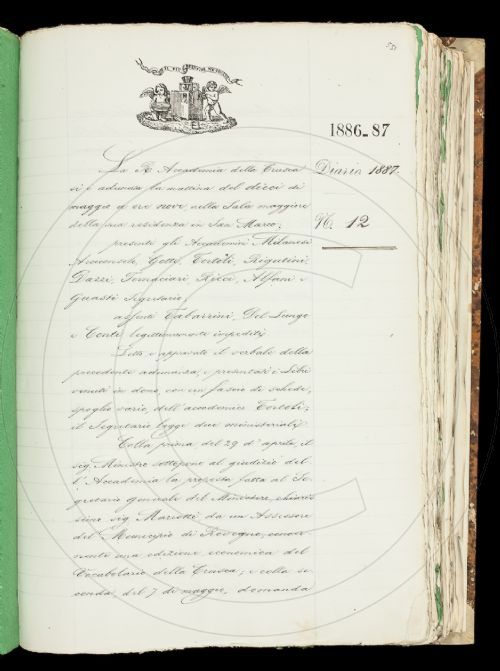 1886-87
La R. Accademia della Crusca
Diario 1887.
si è adunata la mattina del dieci di
maggio a ore nove, nella Sala maggiore
della sua residenza in San Marco;
N. 12
presenti gli Accademici Milanesi
Gotti, Tortoli, Rigutini,
Dazzi, Tomaciari, Ricci, Alfani e
Guasti Segretario;
assenti Tabarrini, Del Lungo
e Conti legittimamente impediti.
Letto e approvato il verbale della
precedente adunanza, e presentati i Libri
venuti in dono, con un fascio di schede,
spoglio vario, dell'accademico Tortoli;
il Segretario legge due ministeriali.
Colla prima del 29 d'aprile, il
sig. Ministro sottopone al giudizio del
l'Accademia la proposta fatta al Se
gretario Generale del Ministero, chiaris
simo sig. Mariotti da un Assessore
del Municipio di concer
nente una edizione economica del
Vocabolario della Crusca; e colla se
conda, del 7 di maggio, domanda